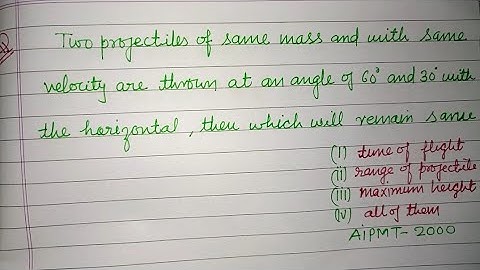 Two projectiles of same mass and with same
velocity are thrown at an angle of 60° and 30° with
the horizontal, then which will remain same
(i) time of flight
(ii) range of projectile
(iii) maximum height
(iv) all of them
AIPMT-2000